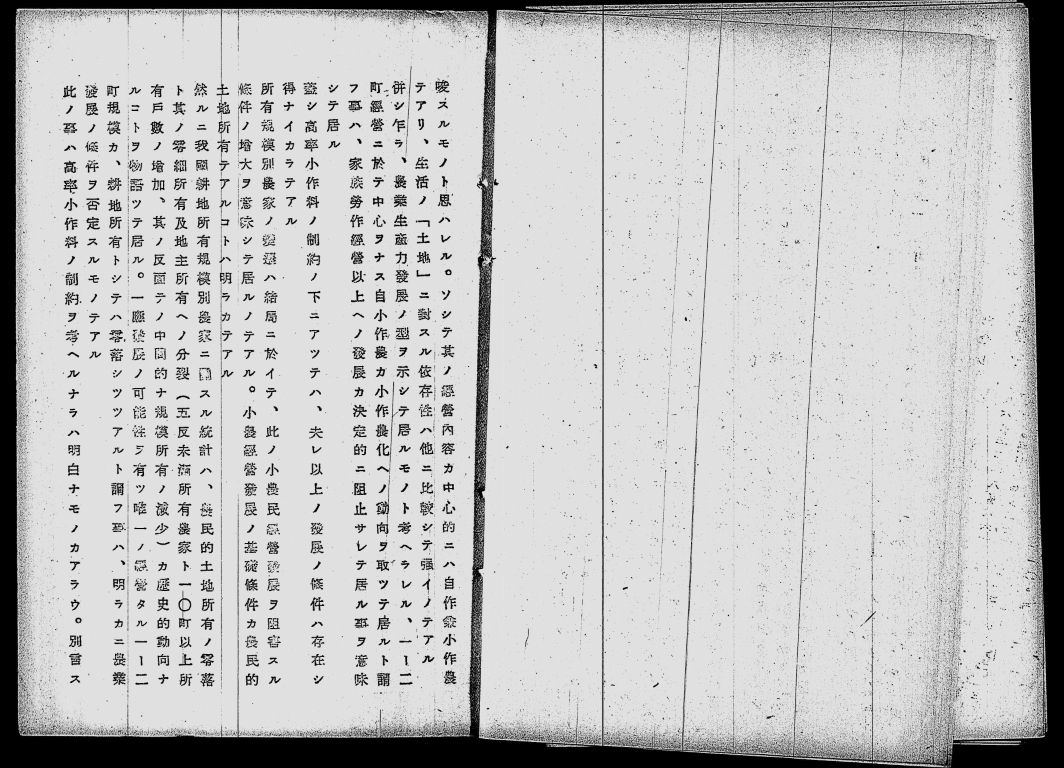 唆スルモノト思ハレル。ソシテ其ノ經營內容カ中心的ニハ自作兼小作農
テアリ、生活ノ「土地」ニ對スル依存性ハ他ニ比較シテ强イノテアル
併シ乍ラ、農業生產力發展ノ型ヲ示シテ居ルモノト考ヘラレル、一ー二
町經營ニ於テ中心ヲナス自小作農カ小作農化ヘノ動向ヲ取ツテ居ルト謂
フ事ハ、家族勞作經營以上ヘノ發展カ決定的ニ阻止サレテ居ル事ヲ意味
シテ居ル
蓋シ高率小作料ノ制約ノ下ニアツテハ、夫レ以上ノ發展ノ條件ハ存在シ
得ナイカラテアル
所有規模別農家ノ發展ハ結局ニ於イテ、此ノ小農民經營發展ヲ阻害スル
條件ノ增大ヲ意味シテ居ルノテアル。小農經營發展ノ基礎條件カ農民的
土地所有テアルコトハ明ラカテアル
然ルニ我國耕地所有規模別農家ニ關スル統計ハ、農民的土地所有ノ零落
ト其ノ零細所有及地主所有ヘノ分裂(五反未滿所有農家ト一〇町以上所
有戶數ノ增加、其ノ反面テノ中間的ナ規模所有ノ減少)カ歷史的動向ナ
ルコトヲ物語ツテ居ル。一應發展ノ可能性ヲ有ツ唯一ノ經營タル一ー二
町規模カ、耕地所有トシテハ零落シツツアルト謂フ事ハ、明ラカニ農業
發展ノ條件ヲ否定スルモノテアル
此ノ事ハ高率小作料ノ制約ヲ考ヘルナラハ明白ナモノカアラウ。別言ス